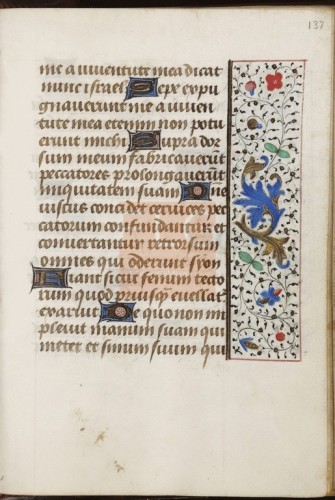 137
me a iuventute mea dicat
nunc israel Sepe expu
gnaverunt me a iuven
tute mea etenim non potu
erunt michi Supra dor
sum meum fabricaverūt
peccatores prolongaverūt
iniquitatem suam Do ne
iustus concidet cervices pec
catorum confundantur et
convertantur retrorsum
omnes qui oderunt syon
Fiant sicut fenum tecto
rum quod priusq̄ evellat
exaruit De quo non im
plevit manum suam qui
metet et sinum suum qui